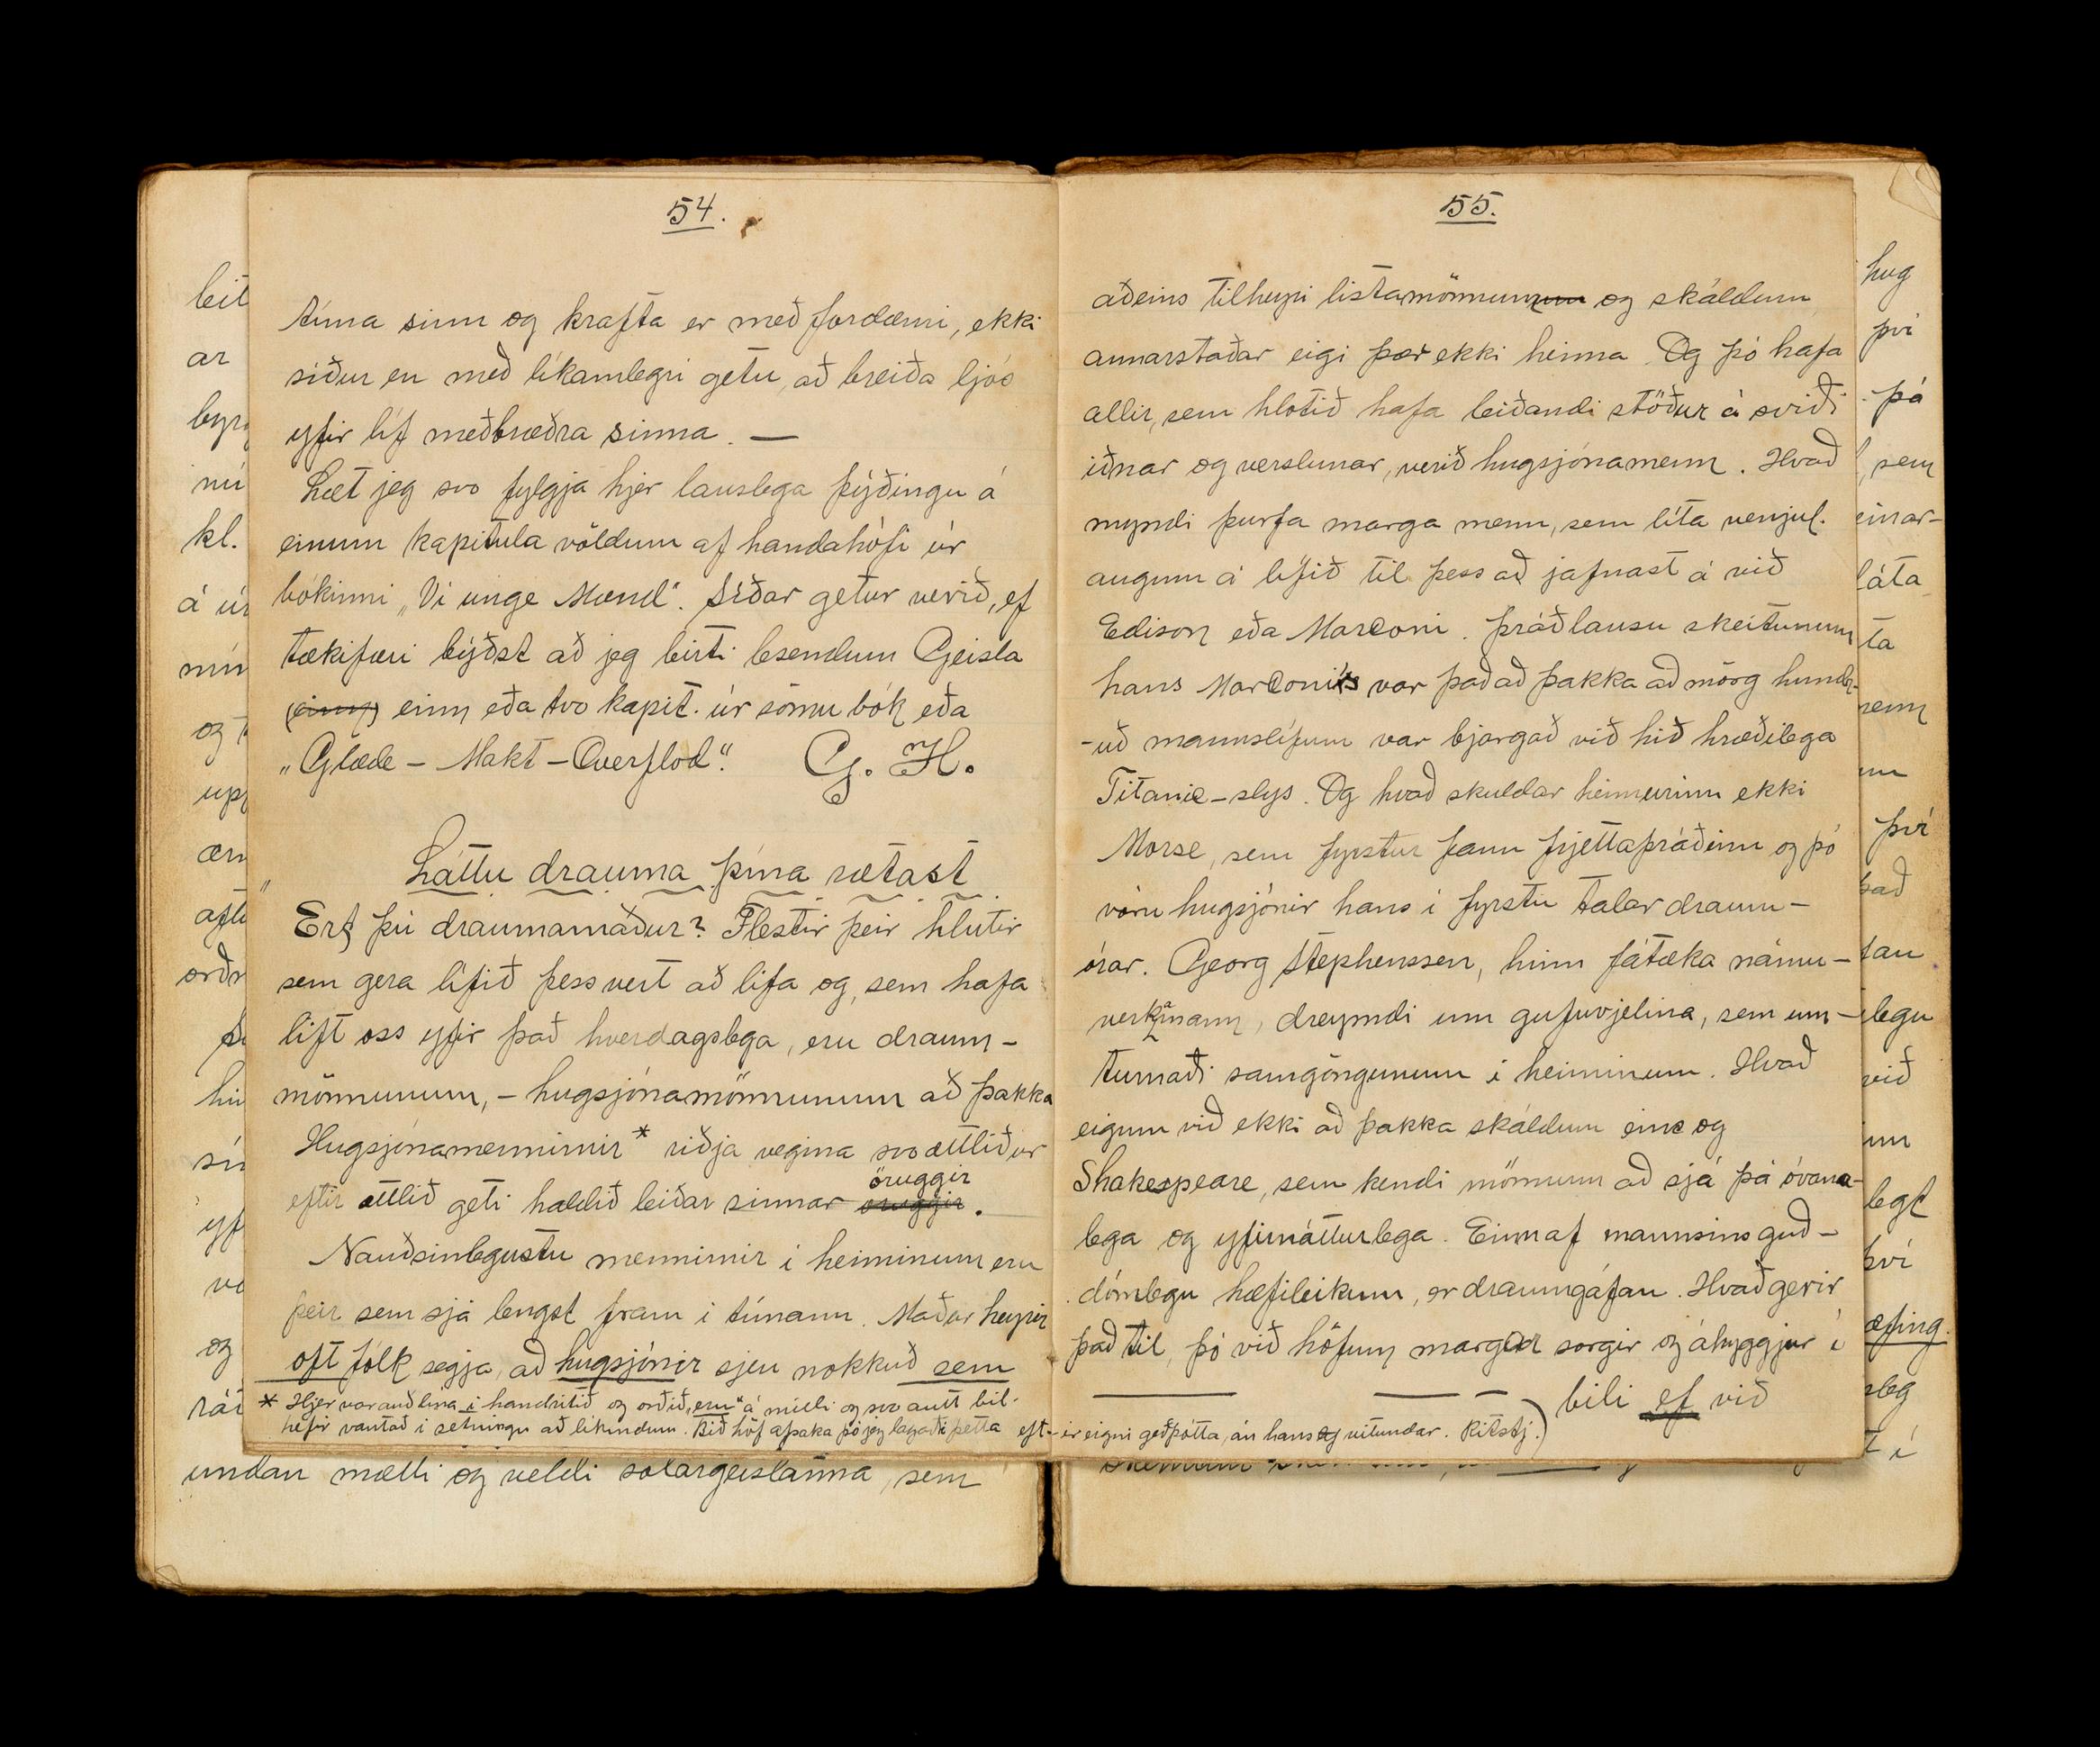 54.
tíma sinn og krafta er með fordæmi, ekki
síður en með líkamlegri getu, að breiða ljós
yfir líf meðbræðra sinna. —
Læt jeg svo fylgja hjer lauslega þýðingu á
einum kapitula völdum af handahófi úr
bókinni „Vi unge Mænd“. Síðar getur verið, ef
tækifæri býðst að jeg birti lesendum Geisla
(einn) einn eða tvo kapit. úr sömu bók eða
„Glæde – Makt – Overflod“. G. H.
Láttu drauma þína rætast
„Ert þú draumamaður? Flestir þeir hlutir
sem gera lífið þess vert að lifa og, sem hafa
lift oss yfir það hverdagslega, eru draum-
mönnunum, – hugsjónamönnunum að þakka
Hugsjónamennirnir* riðja vegina svo ættliður
eftir ættlið geti haldið leiðar sinnar öruggir öruggir.
Nauðsinlegustu mennirnir í heiminum eru
þeir sem sjá lengst fram í tímann. Maður heyrir
oft fólk segja, að hugsjónir sjeu nokkuð sem
* Hjer var auð lína í handritið og orðið „eru“ á milli og svo autt bil.
hefir vantað í setningu að líkindum. Bið höf afsaka þó jeg lagaði þetta eft-
55.
aðeins tilheyri listamönnunum og skáldum
annarstaðar eigi þær ekki heima Og þó hafa
allir, sem hlotið hafa leiðandi stöður á sviði
iðnar og verslunar, verið hugsjónamenn. Hvað
myndi þurfa marga menn, sem líta venjul.
augum á lífið til þess að jafnast á við
Edison eða Marconi. Þráðlausu skeitunum
hans Marconi's var það að þakka að mörg hundr-
-uð mannslífum var bjargað við hið hræðilega
Titanic-slys. Og hvað skuldar heimurinn ekki
Morse, sem fyrstur fann frjettaþráðinn og þó
vóru hugsjónir hans í fyrstu talar draum-
órar. Georg Stephenssen, hinn fátæka námu-
verkmann, dreymdi um gufuvjelina, sem um-
turnaði samgöngunum í heiminum. Hvað
eigum við ekki að þakka skáldum eins og
Shakespeare, sem kendi mönnum að sjá þá óvana-
lega og yfirnátturlega. Einn af mannsins guð-
dómlegu hæfileikum, er draumgáfan. Hvað gerir
það til, þó við höfum margar sorgir og áhyggjur í
bili ef við
ir eigin geðþótta, án hans og vitundar. Ritstj.)
leit
ar
nú
kl.
á úr
mín
og
orðr
og
undan mætti og veldi sólargeislanna, sem
hug
því
þá
sem
einar-
láta
ta
því
það
legu
við
legt
því
æfing.
leg